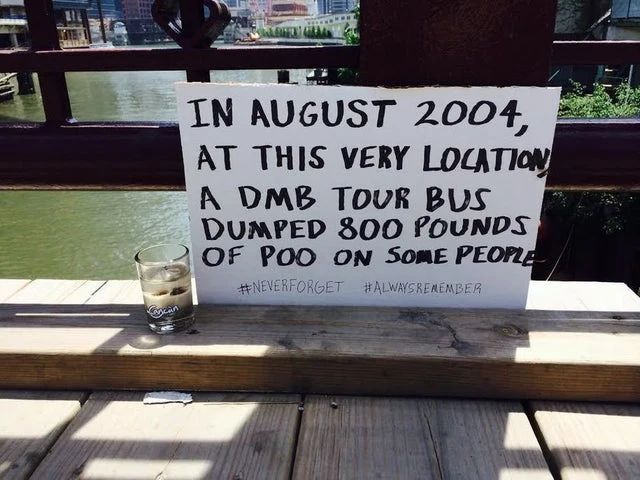 IN AUGUST 2004,
AT THIS VERY LOCATION,
A DMB TOUR BUS
DUMPED 800 POUNDS
OF POO ON SOME PEOPLE
#NEVERFORGET #ALWAYSREMEMBER
Cancún